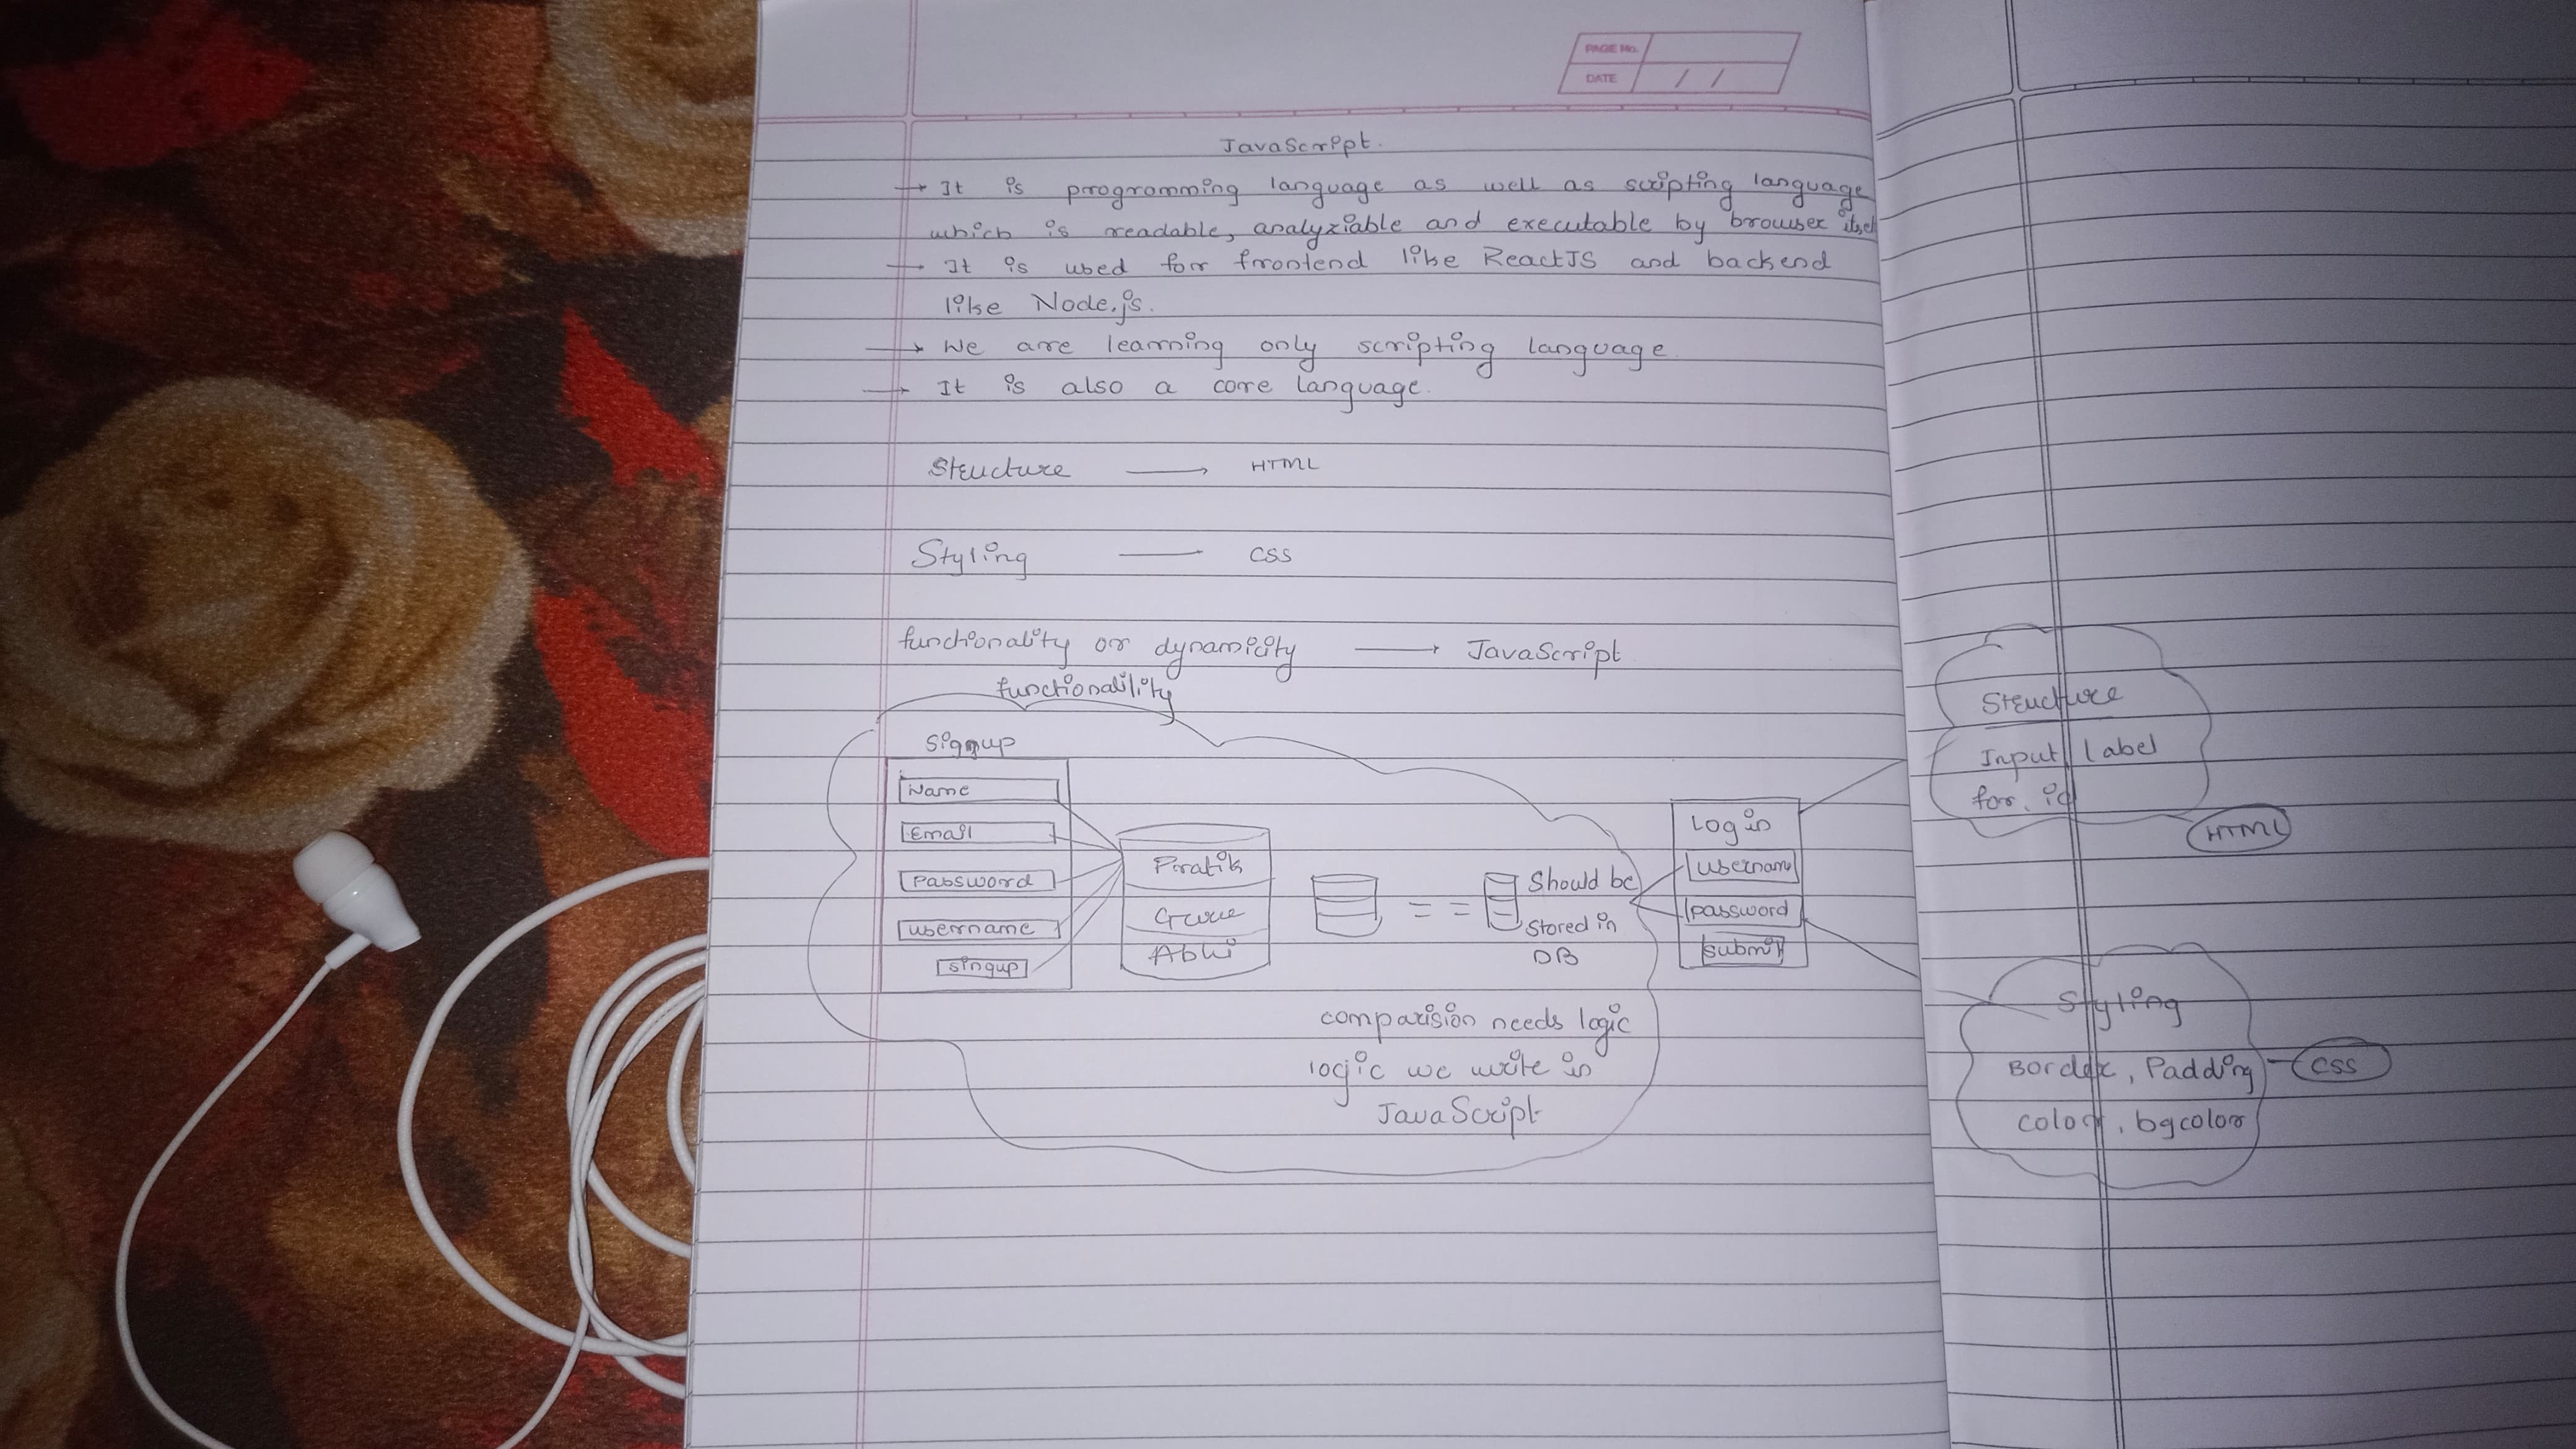 PAGE No.
DATE / /
JavaScript.
→ It is programming language as well as scripting language
which is readable, analyziable and executable by browser itself
→ It is used for frontend like ReactJS and backend
like Node.js.
→ We are learning only scripting language
→ It is also a core language.
Structure → HTML
Styling — CSS
functionality or dynamicity → JavaScript
functionalility
Signup
Name
Email
Password
username
singup
Pratik
Abhi
= =
Should be
Stored in
DB
Login
username
password
submit
comparision needs logic
logic we write in
JavaScript
Structure
Input label
for, id
HTML
Styling
Border, Padding - CSS
color, bgcolor